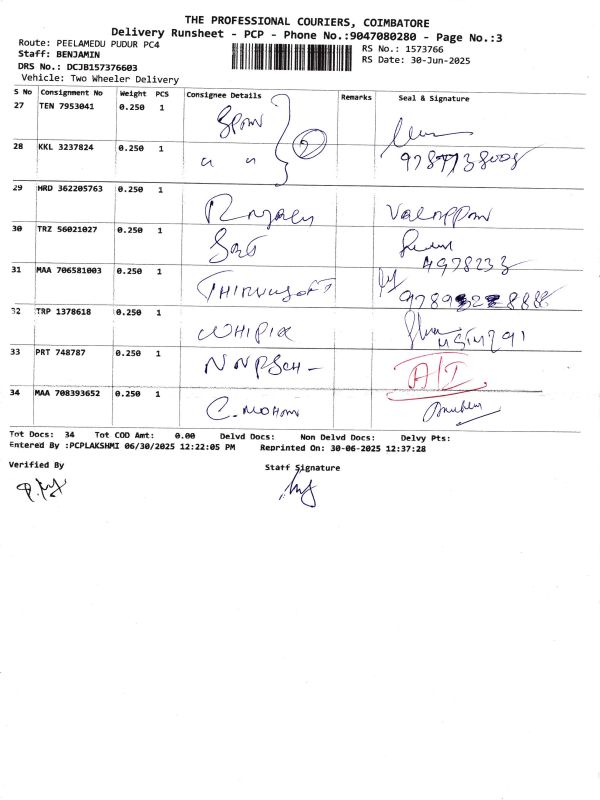 THE PROFESSIONAL COURIERS, COIMBATORE
Delivery Runsheet - PCP - Phone No.:9047080280 - Page No.:3
Route: PEELAMEDU PUDUR PC4
Staff: BENJAMIN
DRS No.: DCJB157376603
Vehicle: Two Wheeler Delivery
RS No.: 1573766
RS Date: 30-Jun-2025
S No Consignment No Weight PCS Consignee Details Remarks Seal & Signature
27 TEN 7953041 0.250 1
28 KKL 3237824 0.250 1 " "
29 HRD 362205763 0.250 1
30 TRZ 56021027 0.250 1
31 MAA 706581003 0.250 1 THIRUUSOFT
32 TRP 1378618 0.250 1 WHIPIX
33 PRT 748787 0.250 1
34 MAA 708393652 0.250 1 C. MOHAN
Tot Docs: 34 Tot COD Amt: 0.00 Delvd Docs: Non Delvd Docs: Delvy Pts:
Entered By :PCPLAKSHMI 06/30/2025 12:22:05 PM Reprinted On: 30-06-2025 12:37:28
Verified By
Staff Signature